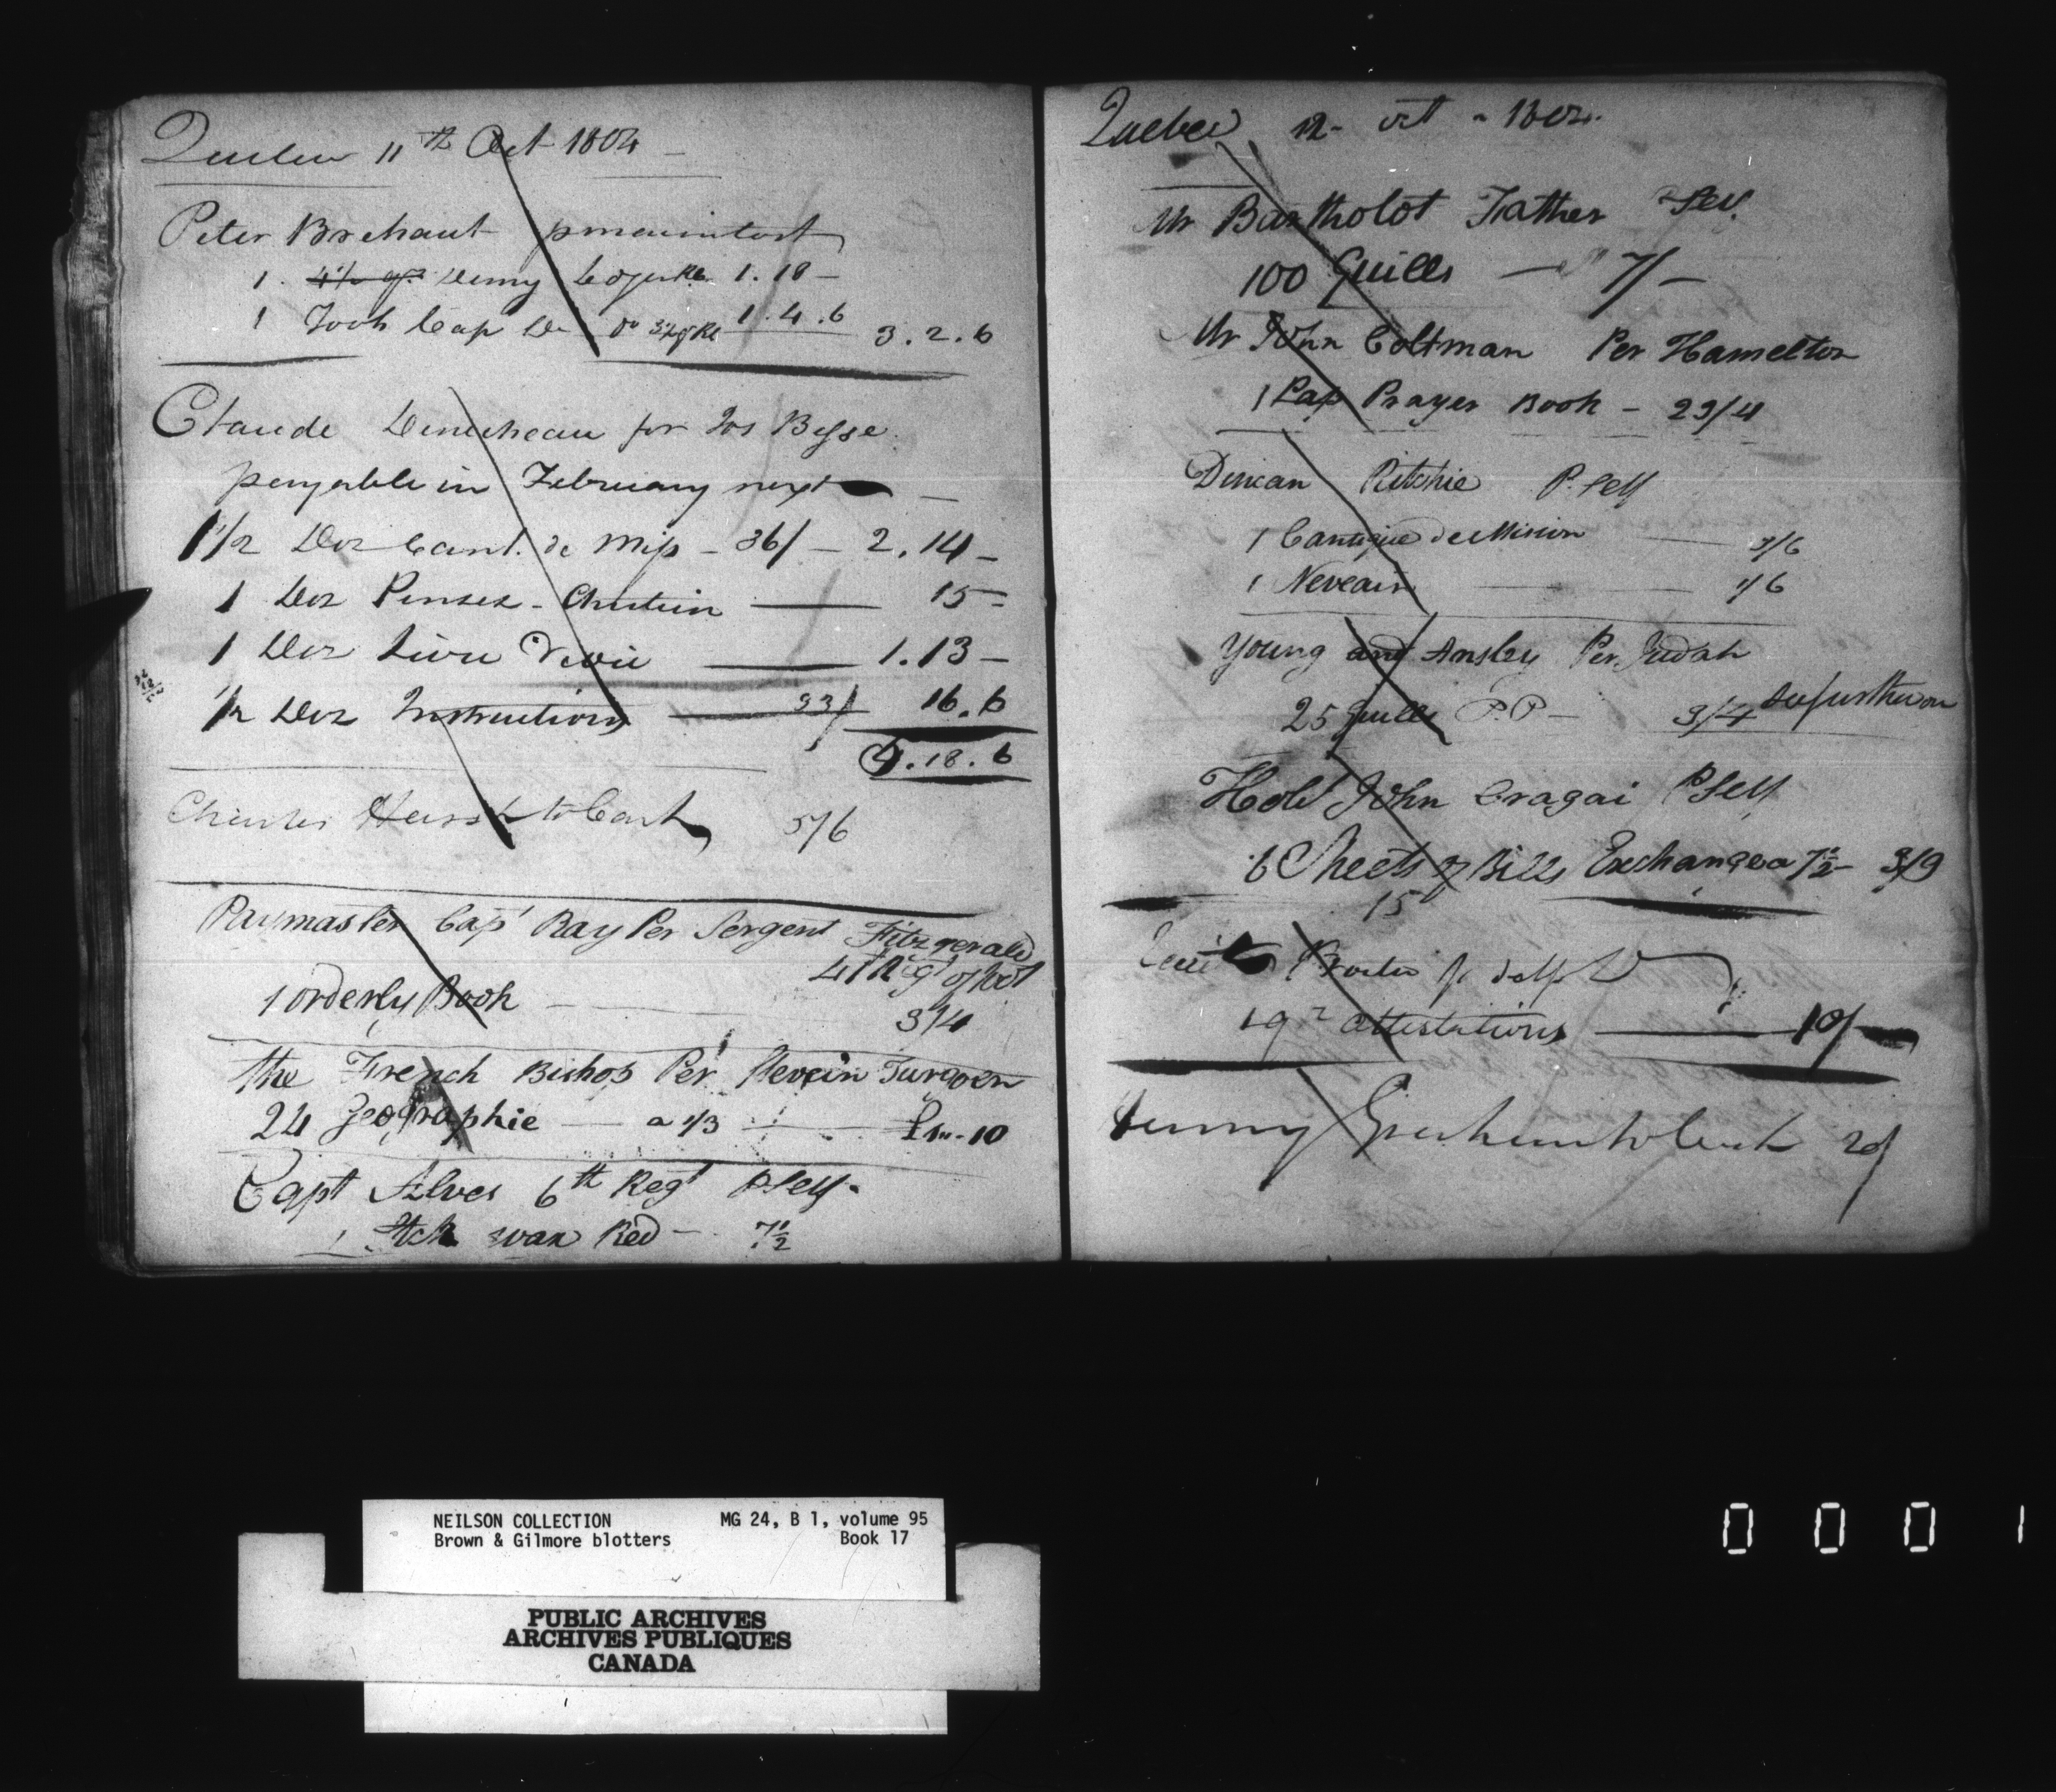 Quebec 11th Oct 1804
Peter Brehaut
1. Demy 1.18 -
1 Foolscap Do 1.4.6 3.2.6
Claude Denecheau for Jos Bysse
payable in February next -
1 1/2 Doz Cant. de Miss - 36/ - 2.14 -
1 Doz Pensez - Chretien 15 -
1 Doz Livre de vie 1.13 -
1/2 Doz Instructions 33/ 16.6
5.18.6
Charles to Cash 5/6
Paymaster Capt Ray Per Sergent Fitzgerald
41 Regt of foot
1 orderly Book 3/4
the French Bishop Per Flevein Turgoen
24 Geographie - a 1/3 £1 - 10
Capt Alves 6th Regt P Self -
1 Stck wax Red - 7 1/2
Quebec 12 - oct - 1804.
Mr Bartholot Father P Self
100 Quills - 7/-
Mr John Coltman Per Hamelton
1 Pap Prayer Book - 23/4
Duncan Ritchie P. Self
1 Cantique de Mission 3/6
1 Neveain 1/6
Young and Ansley Per Judah
25 Quills P.P - 3/4 See further on
Hole John Cragai P Self
6 Sheets of Bills Exchange a 7 1/2 - 3/9
15
Proctor p self
19 attestations 10/-
to Cash 20/
NEILSON COLLECTION MG 24, B 1, volume 95
Brown & Gilmore blotters Book 17
PUBLIC ARCHIVES
ARCHIVES PUBLIQUES
CANADA
0 0 0 1